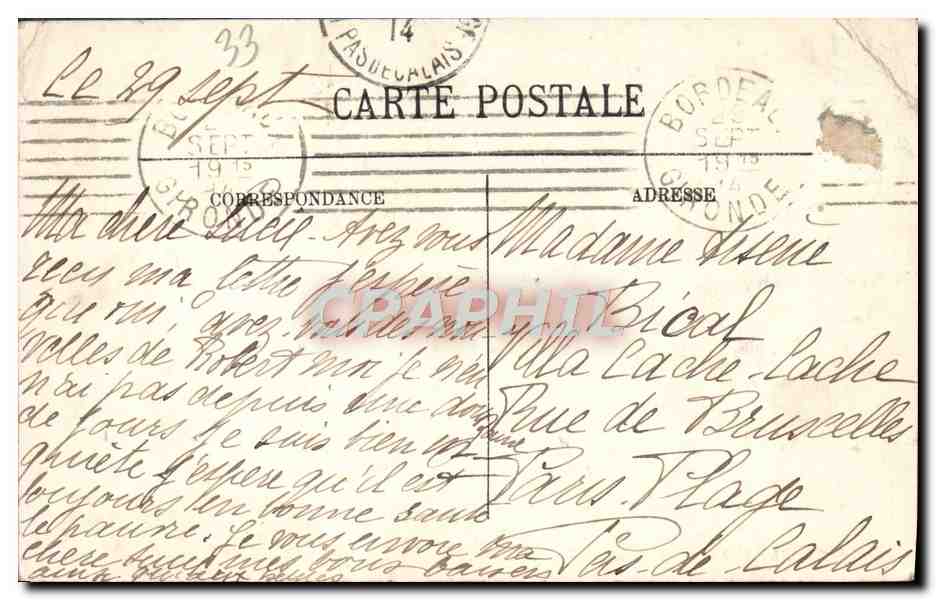 33
14
PAS DE CALAIS
Le 29 sept
CARTE POSTALE
BORDEAUX
SEPT
19
14
GIRONDE
BORDEAU
SEPT
19
14
GIRONDE
CORRESPONDANCE
ADRESSE
Ma chère Lucie. Avez vous
recu ma lettre j'espère
que oui, avez
velles de Robert moi je n'en
n'ai pas depuis une douzaine
de jours je suis bien in
quiète j'espère qu'il est
toujours en bonne santé
le pauvre. Je vous envoie ma
chère Lucie mes bons baisers
Madame Arsene
Bical
Villa Cache-Cache
Rue de Bruxcelles
Paris-Plage
Pas-de-Calais
CPAPHIL